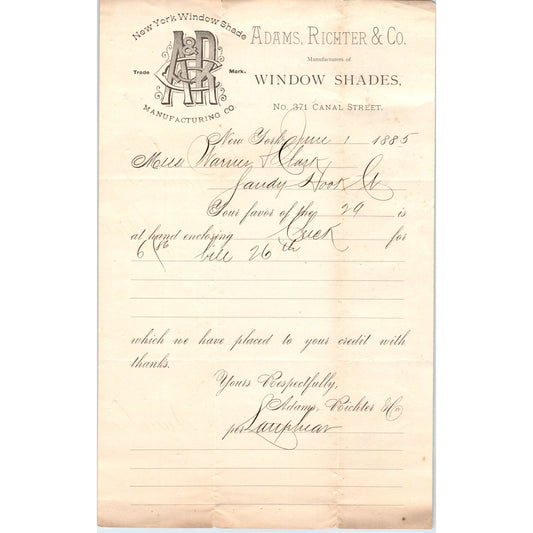 New York Window Shade
Trade Mark.
Manufacturing Co.
Adams, Richter & Co.
Manufacturers of
Window Shades,
No. 371 Canal Street.
New York, June 1 1885
Mess Warner & Clark
Sandy Hook Ct
Your favor of the 29 is
at hand enclosing Check for
6 86 bill 26th
which we have placed to your credit with
thanks.
Yours Respectfully,
Adams, Richter & Co
per